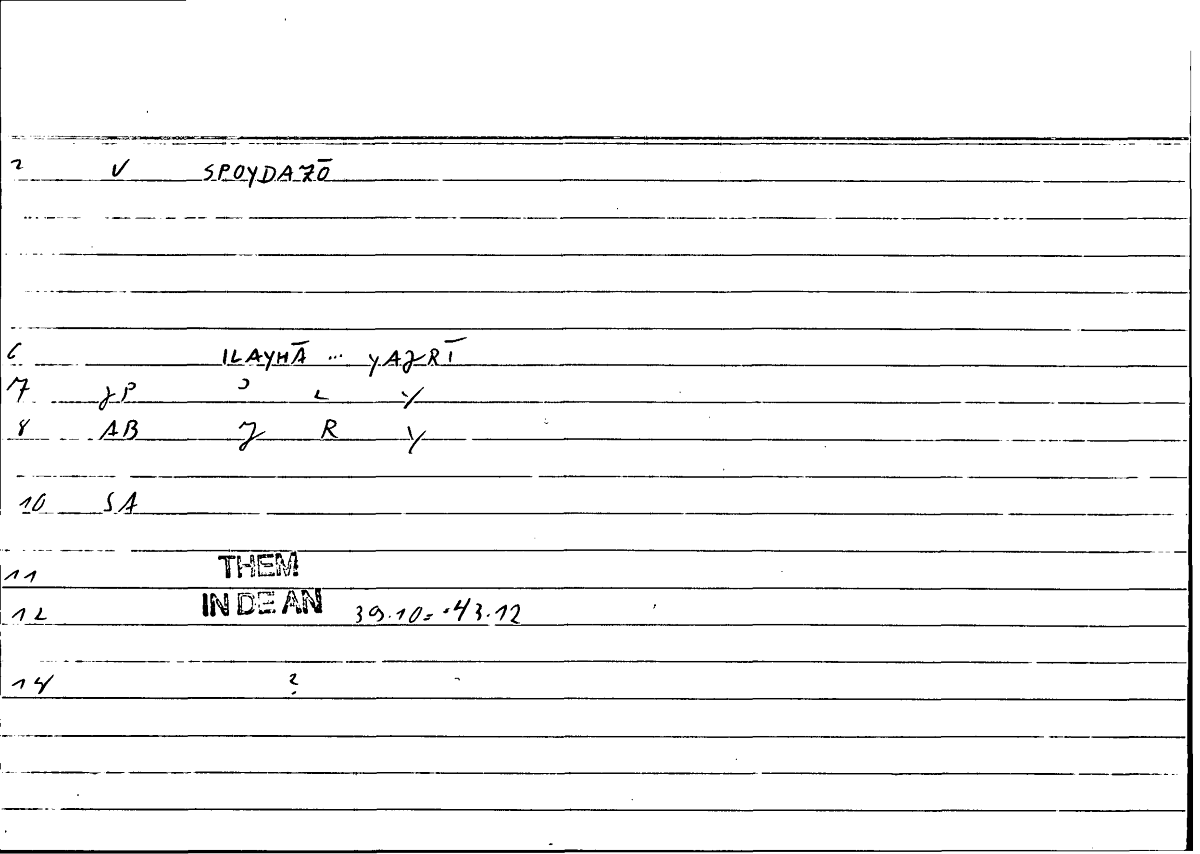 2 V SPOYDAZŌ
6 ILAYHĀ ... YAJRĪ
7
8 AB R
10 SA
11 THEM
12 IN DE AN 39.10= .43.12
14 ?